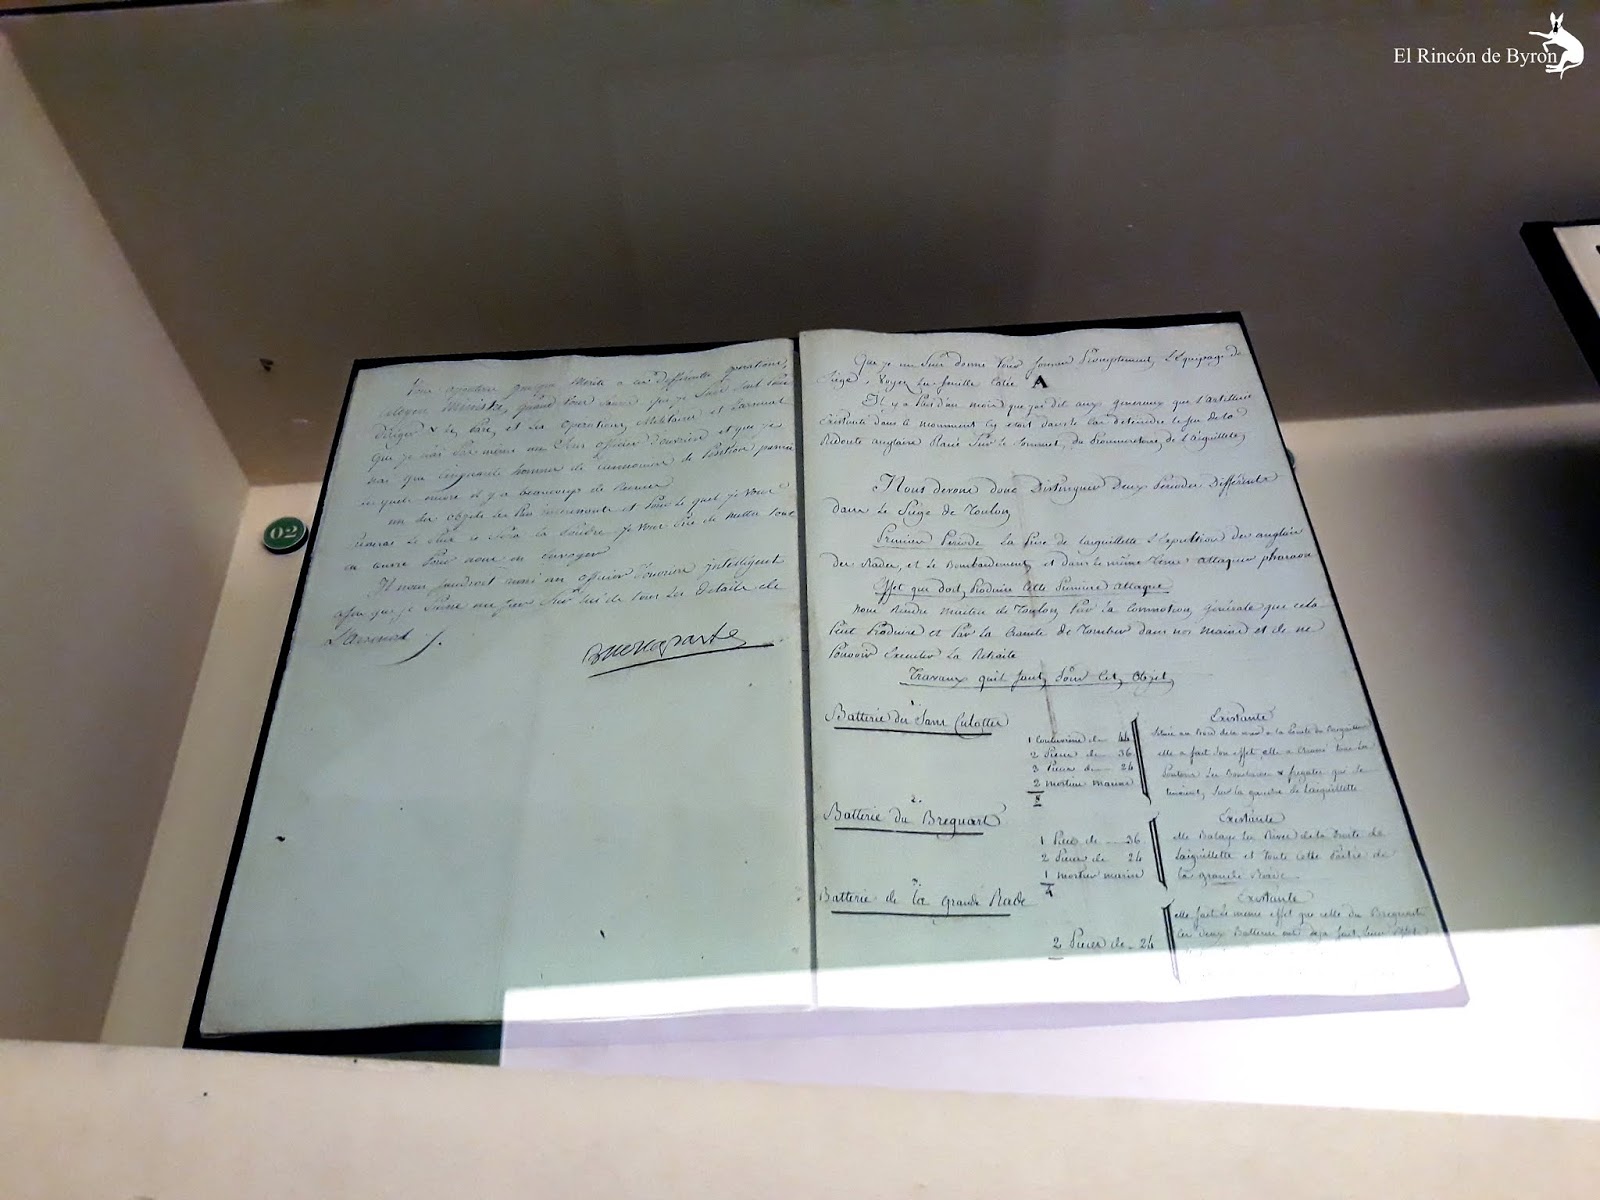 El Rincón de Byron
02
Vous ajouterez quelque mérite a ces différentes operations,
citoyen Ministre, quand vous saurez que je suis seul pour
diriger & le Parc, et les operations, Militaires, et L'arsenal
Que je n'ai pas même un Sous officier d'ouvriers et que je n'ai
que Cinquante hommes de canonniers de
il y a beaucoup de
un des objets les Plus interessants et pour lequel je vous
c'est la Poudre. Je vous Prie de mettre tout
en œuvre Pour nous en Envoyer
Il nous faudroit aussi un officier d'ouvriers intelligent
afin que je Puisse me sur lui de tous les Details de
L'arsenal
Buonaparte
Que je me suis donné Pour former Promptement, L'Equipage de
Siége, Voyez La feuille Cotée A
Il y a Plus d'un mois que j'ai dit aux generaux que l'artillerie
Existante dans le moment étoit dans le Cas d'éteindre le feu de la
Redoute anglaise Placée Sur le Sommet, du Promontoire, de L'aiguillete,
Nous devons donc Distinguer Deux Periodes Différents
dans Le Siége de Toulon
Premiere Periode La Prise de L'aiguillette L'Expultion des anglais
des Rades, et Le Bombardement, et dans le même tems attaquer pharaon
Effet que doit, Produire Cette Premiere attaque
nous Rendre Maitre de Toulon, Par la Commotion, Générale que cela
Peut Produire et Par La Crainte de Tomber dans nos mains et de ne
Pouvoir Executer La Retraite
Travaux qu'il faut, Pour Cet, Objet,
1.
Batterie des Sans Culottes
1 Coulevrine de 44
2 Pieces de 36
3 Pieces de 24
2 mortiers marins
8
Existante
Située au Bord de la mer a la Pointe du Breguart
elle a fait Son effet, elle a Chassé tous les
Pontons Les Bombardes & fregates qui se
tenoient, Sur la gauche de L'aiguillette
2.
Batterie du Breguart
1 Piece de 36
2 Pieces de 24
1 mortier marin
4
Existante
elle Balaye les Rives de la Droite de
L'aiguillette et toute Cette Partie de
La grande Rade
3.
Batterie de La Grande Rade
2 Pieces de 24
Existante
elle fait Le même effet que celle du Breguart
Ces deux Batteries ont déja fait, leur effet